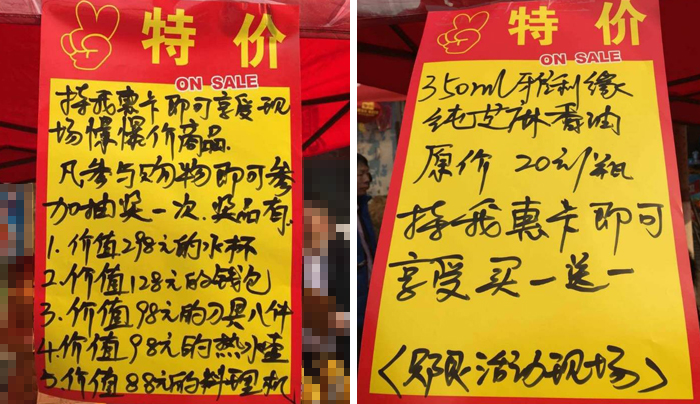 特 价
ON SALE
持我惠卡即可享受现
场爆爆价商品.
凡参与购物即可参
加抽奖一次.奖品有.
1.价值298元的水杯
2.价值128元的钱包
3.价值98元的刀具八件
4.价值98元的热水壶
5.价值88元的料理机
特 价
ON SALE
350ml 利缘
纯芝麻香油
原价 20元/瓶
持我惠卡即可
享受买一送一
活动现场〉